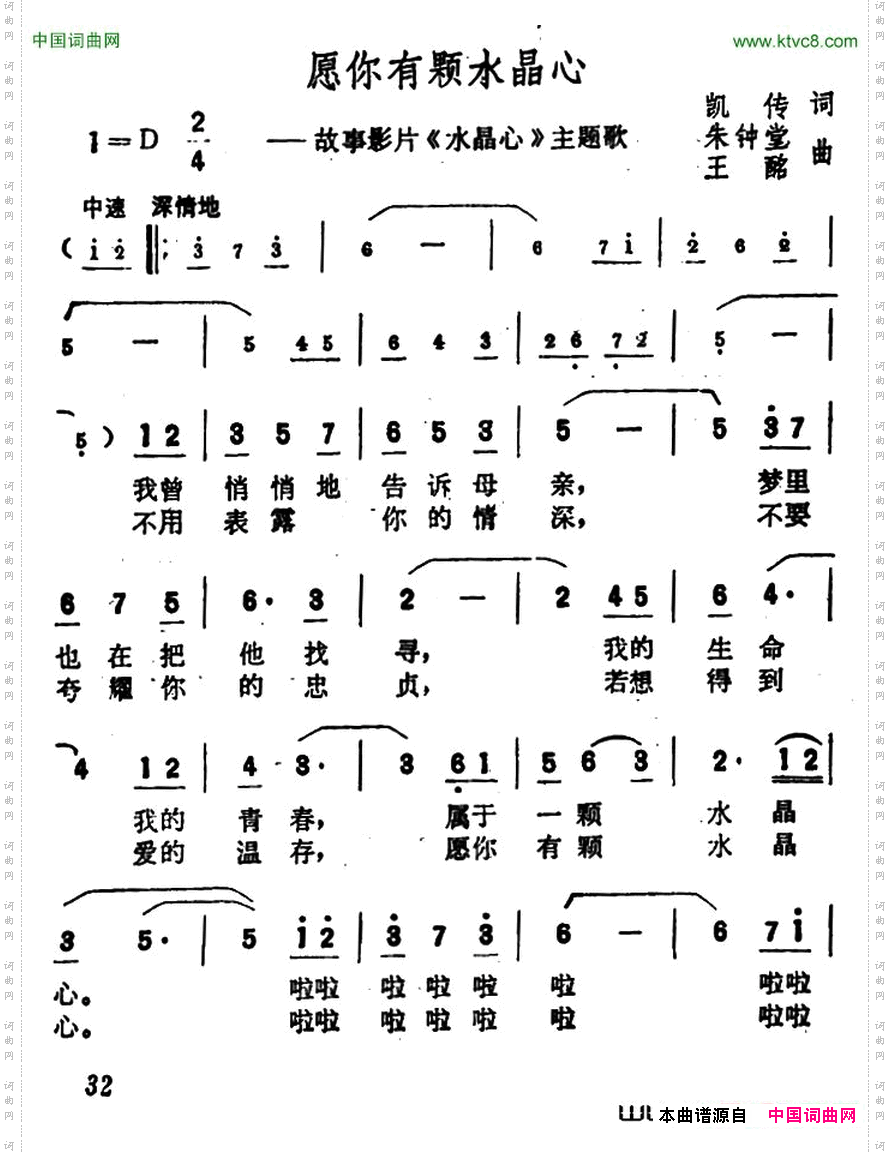 中国词曲网 www.ktvc8.com
愿你有颗水晶心
凯传 词
1=D 2/4 ——故事影片《水晶心》主题歌 朱钟堂 曲
王酩
中速 深情地
( 1 2 ‖: 3 7 3 | 6 — | 6 7 1 | 2 6 2 |
5 — | 5 4 5 | 6 4 3 | 2 6 7 2 | 5 — |
5 ) 1 2 | 3 5 7 | 6 5 3 | 5 — | 5 3 7
我曾 悄悄地 告诉母 亲, 梦里
不用 表露 你的情 深, 不要
6 7 5 | 6· 3 | 2 — | 2 4 5 | 6 4· |
也在把 他找 寻, 我的 生命
夸耀你 的忠 贞, 若想 得到
4 1 2 | 4 3· | 3 6 1 | 5 6 3 | 2· 1 2 |
我的 青春, 属于 一颗 水晶
爱的 温存, 愿你 有颗 水晶
3 5· | 5 1 2 | 3 7 3 | 6 — | 6 7 1 |
心。 啦啦 啦啦啦 啦 啦啦
心。 啦啦 啦啦啦 啦 啦啦
32
本曲谱源自 中国词曲网